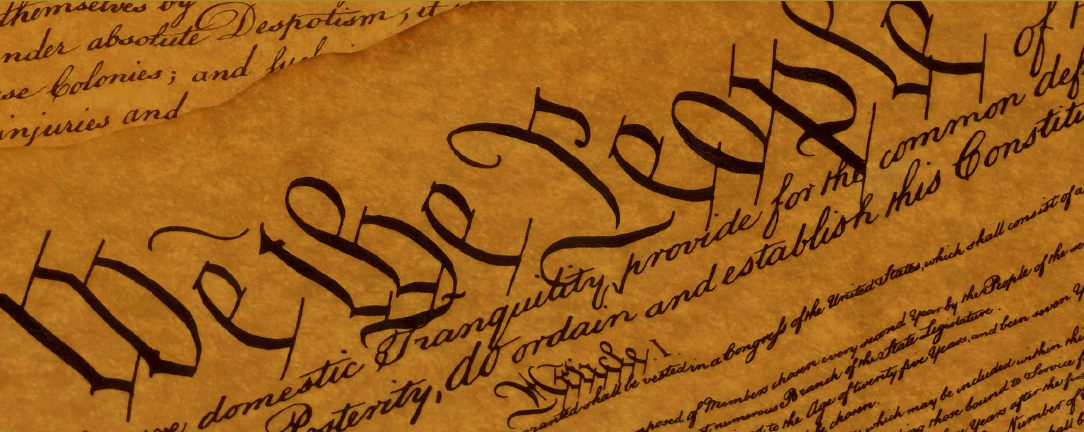 themselves by
under absolute Despotism, it
Colonies; and
injuries and
We the People
of
domestic Tranquility, provide for the common def
Posterity, do ordain and establish this Constitu
Article I
granted shall be vested in a Congress of the United States, which shall consist of a
composed of Members chosen every second Year by the People of the
numerous Branch of the State Legislature.
to the Age of twenty five Years, and been seven Y
be chosen.
which may be included within
those bound to Service
Years after the fi
Number of